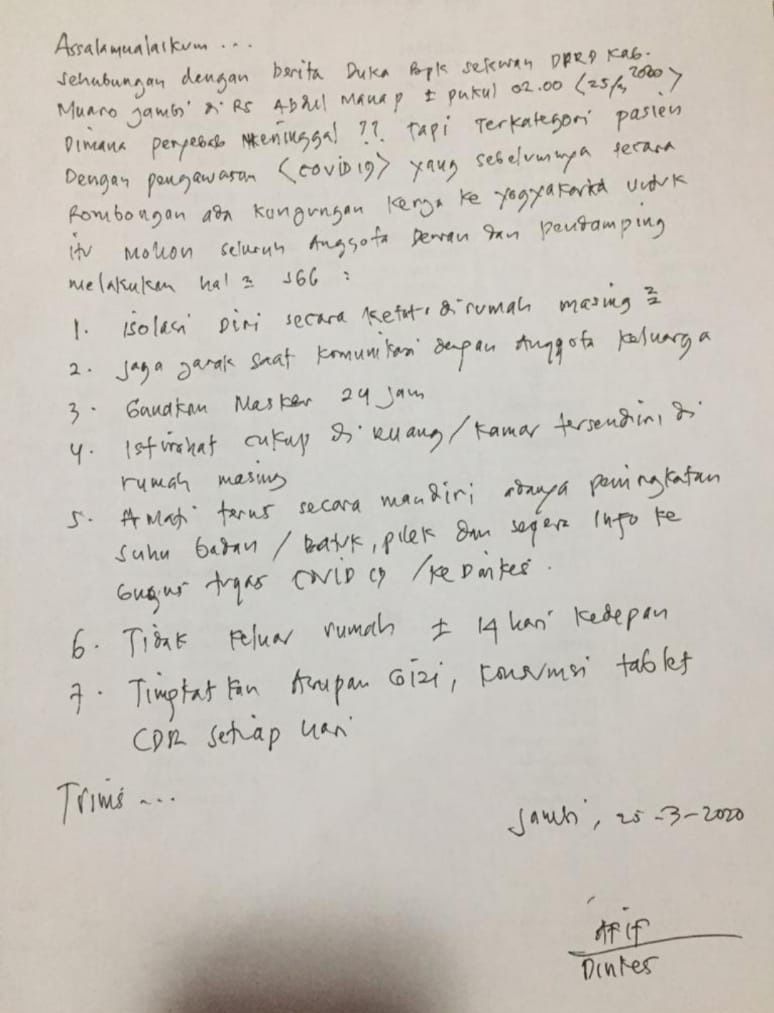 Assalamualaikum ...
Sehubungan dengan berita Duka Bpk sekwan DPRD Kab.
Muaro Jambi di RS Abdul Manap ± pukul 02.00 (25/3 2020)
Dimana penyebab meninggal ?? tapi Terkategori pasien
Dengan pengawasan (covid 19) yang sebelumnya secara
Rombongan ada kungungan kerja ke yogyakarta untuk
itu Mohon seluruh Anggota Dewan dan pendamping
melakukan hal 2 sbb :
1. isolasi Diri secara ketat di rumah masing 2
2. Jaga jarak saat komunikasi dengan Anggota keluarga
3. Gunakan Masker 24 Jam
4. Istirahat cukup di ruang / kamar tersendiri, di
rumah masing
5. Amati terus secara mandiri adanya peningkatan
suhu badan / Batuk, pilek dan segera Info ke
Gugus tugas COVID 19 / ke Dinkes.
6. Tidak keluar rumah ± 14 hari kedepan
7. Tingkatkan Asupan Gizi, konsumsi tablet
CDR setiap hari
Trims ...
Jambi, 25-3-2020
Afif
Dinkes